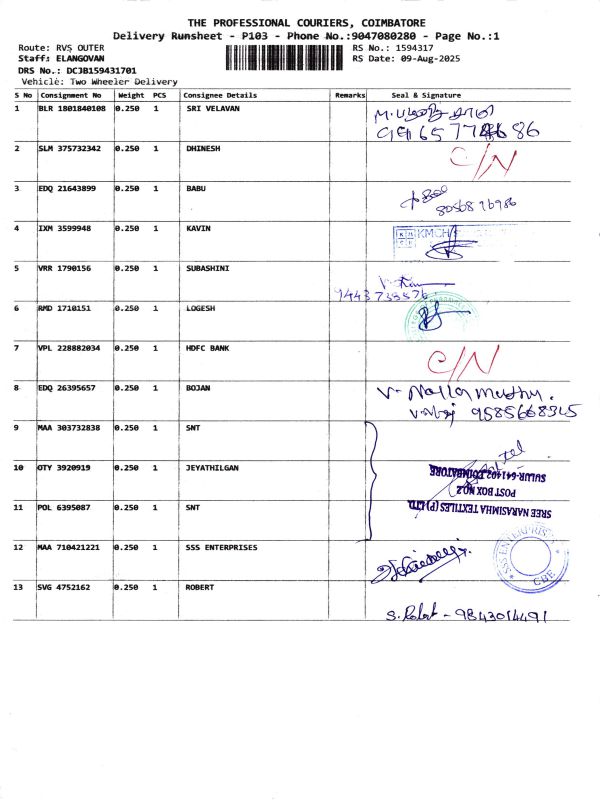 THE PROFESSIONAL COURIERS, COIMBATORE
Delivery Runsheet - P103 - Phone No.:9047080280 - Page No.:1
Route: RVS OUTER RS No.: 1594317
Staff: ELANGOVAN RS Date: 09-Aug-2025
DRS No.: DCJB159431701
Vehicle: Two Wheeler Delivery
S No Consignment No Weight PCS Consignee Details Remarks Seal & Signature
1 BLR 1801840108 0.250 1 SRI VELAVAN
2 SLM 375732342 0.250 1 DHINESH C/N
3 EDQ 21643899 0.250 1 BABU
8056876986
4 IXM 3599948 0.250 1 KAVIN KMCH
5 VRR 1790156 0.250 1 SUBASHINI
9443738576
6 RMD 1710151 0.250 1 LOGESH
7 VPL 228882034 0.250 1 HDFC BANK C/N
8 EDQ 26395657 0.250 1 BOJAN V. Nallamuthu.
9585668345
9 MAA 303732838 0.250 1 SNT
10 OTY 3920919 0.250 1 JEYATHILGAN
SREE NARASIMHA TEXTILES (P) LTD
POST BOX NO.2
SULUR-641402 COIMBATORE
11 POL 6395087 0.250 1 SNT
12 MAA 710421221 0.250 1 SSS ENTERPRISES
SSS ENTERPRISES CBE
13 SVG 4752162 0.250 1 ROBERT
S. Robert - 9843014491